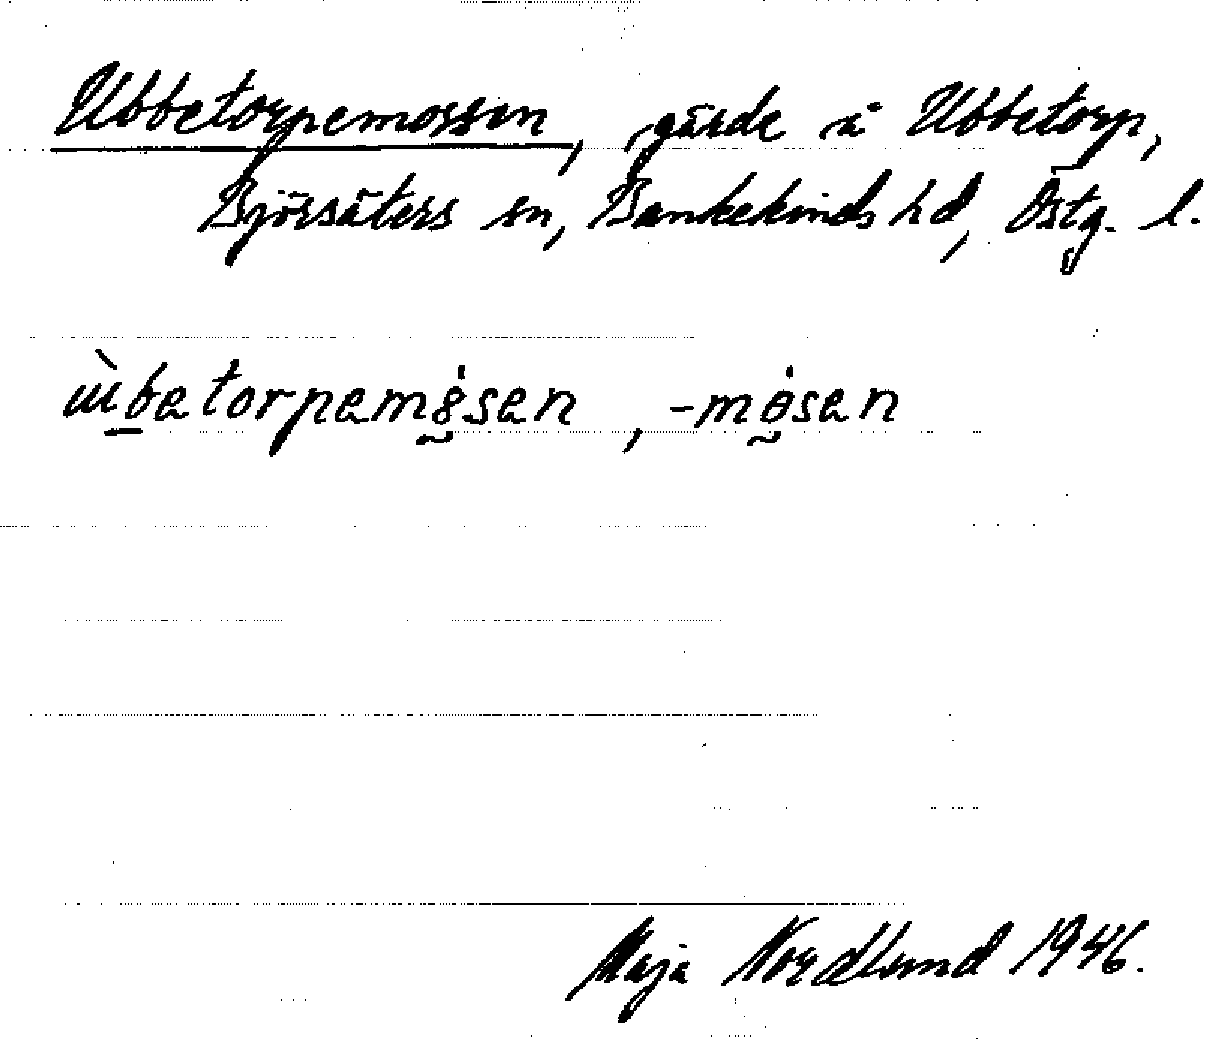 Ubbetorpemossen, gärde å Ubbetorp,
Björsäters sn, Bankekinds hd, Östg. l.
ùbetorpemȯsen, -mȯsen
Maja Nordlund 1946.